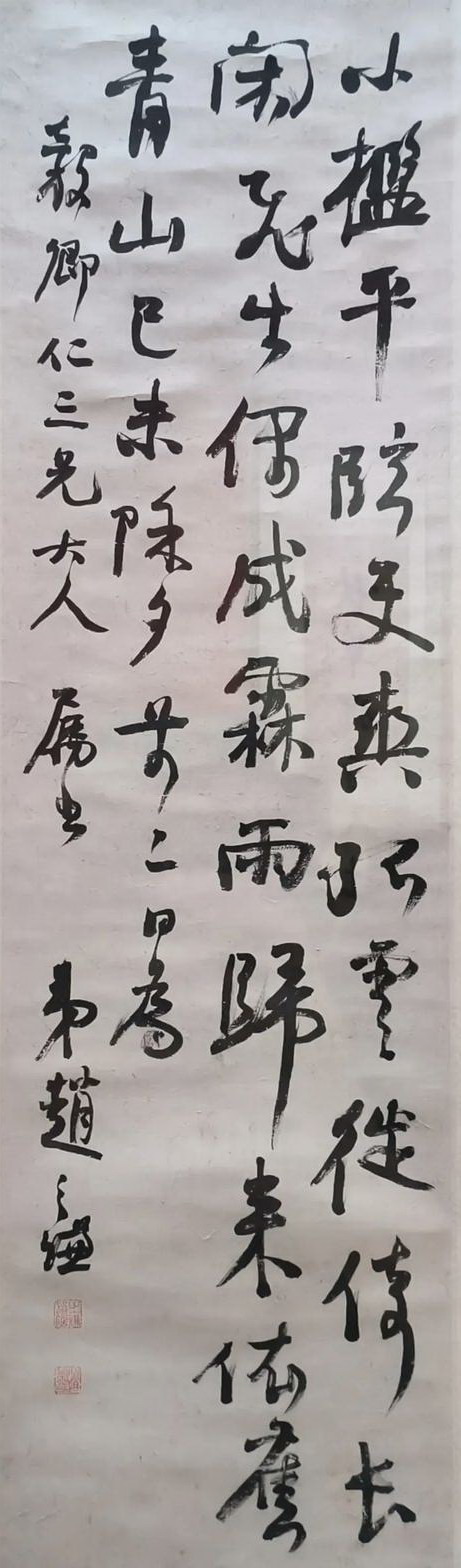 小檻平臨更爽孤雲徙倚長
閑飛出偶成霖雨歸來依舊
青山己未除夕前二日為
毅卿仁三兄大人屬書 弟趙之謙